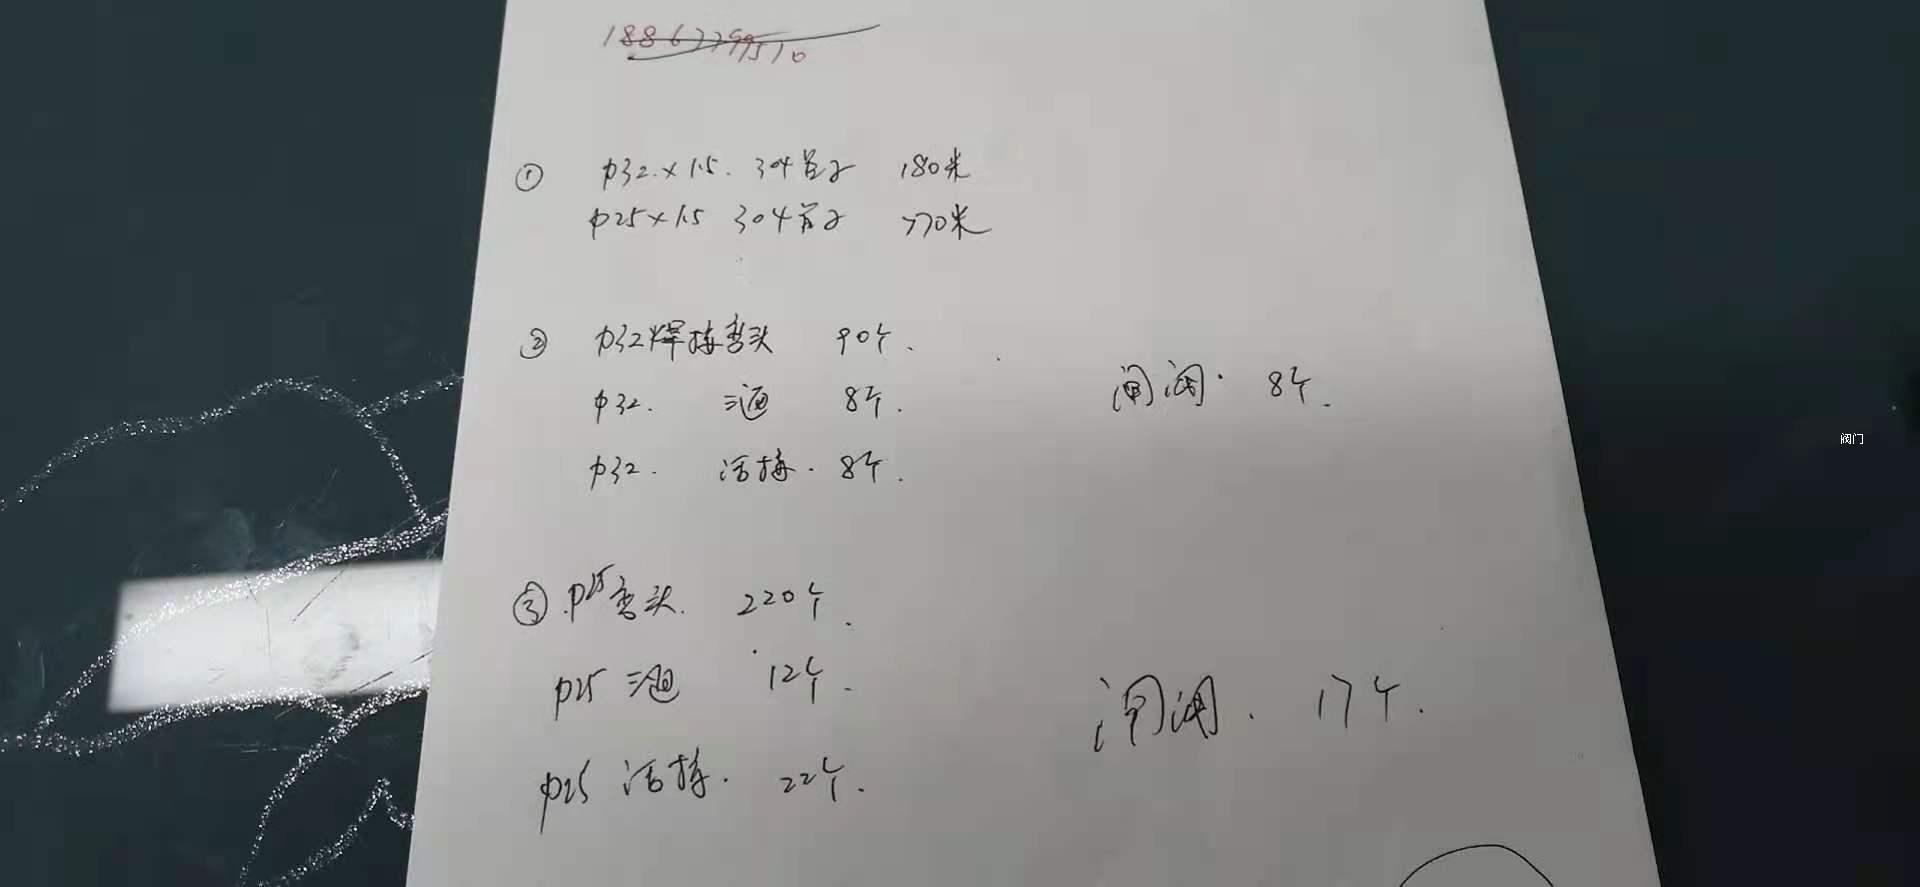 18867799510
① φ32×1.5. 304管子 180米
φ25×1.5 304管子 770米
② φ32焊接弯头 90个.
φ32. 三通 8个. 闸阀. 8个.
φ32. 活接. 8个.
阀门
③ φ25弯头. 220个.
φ25 三通 12个. 闸阀. 17个.
φ25 活接. 22个.